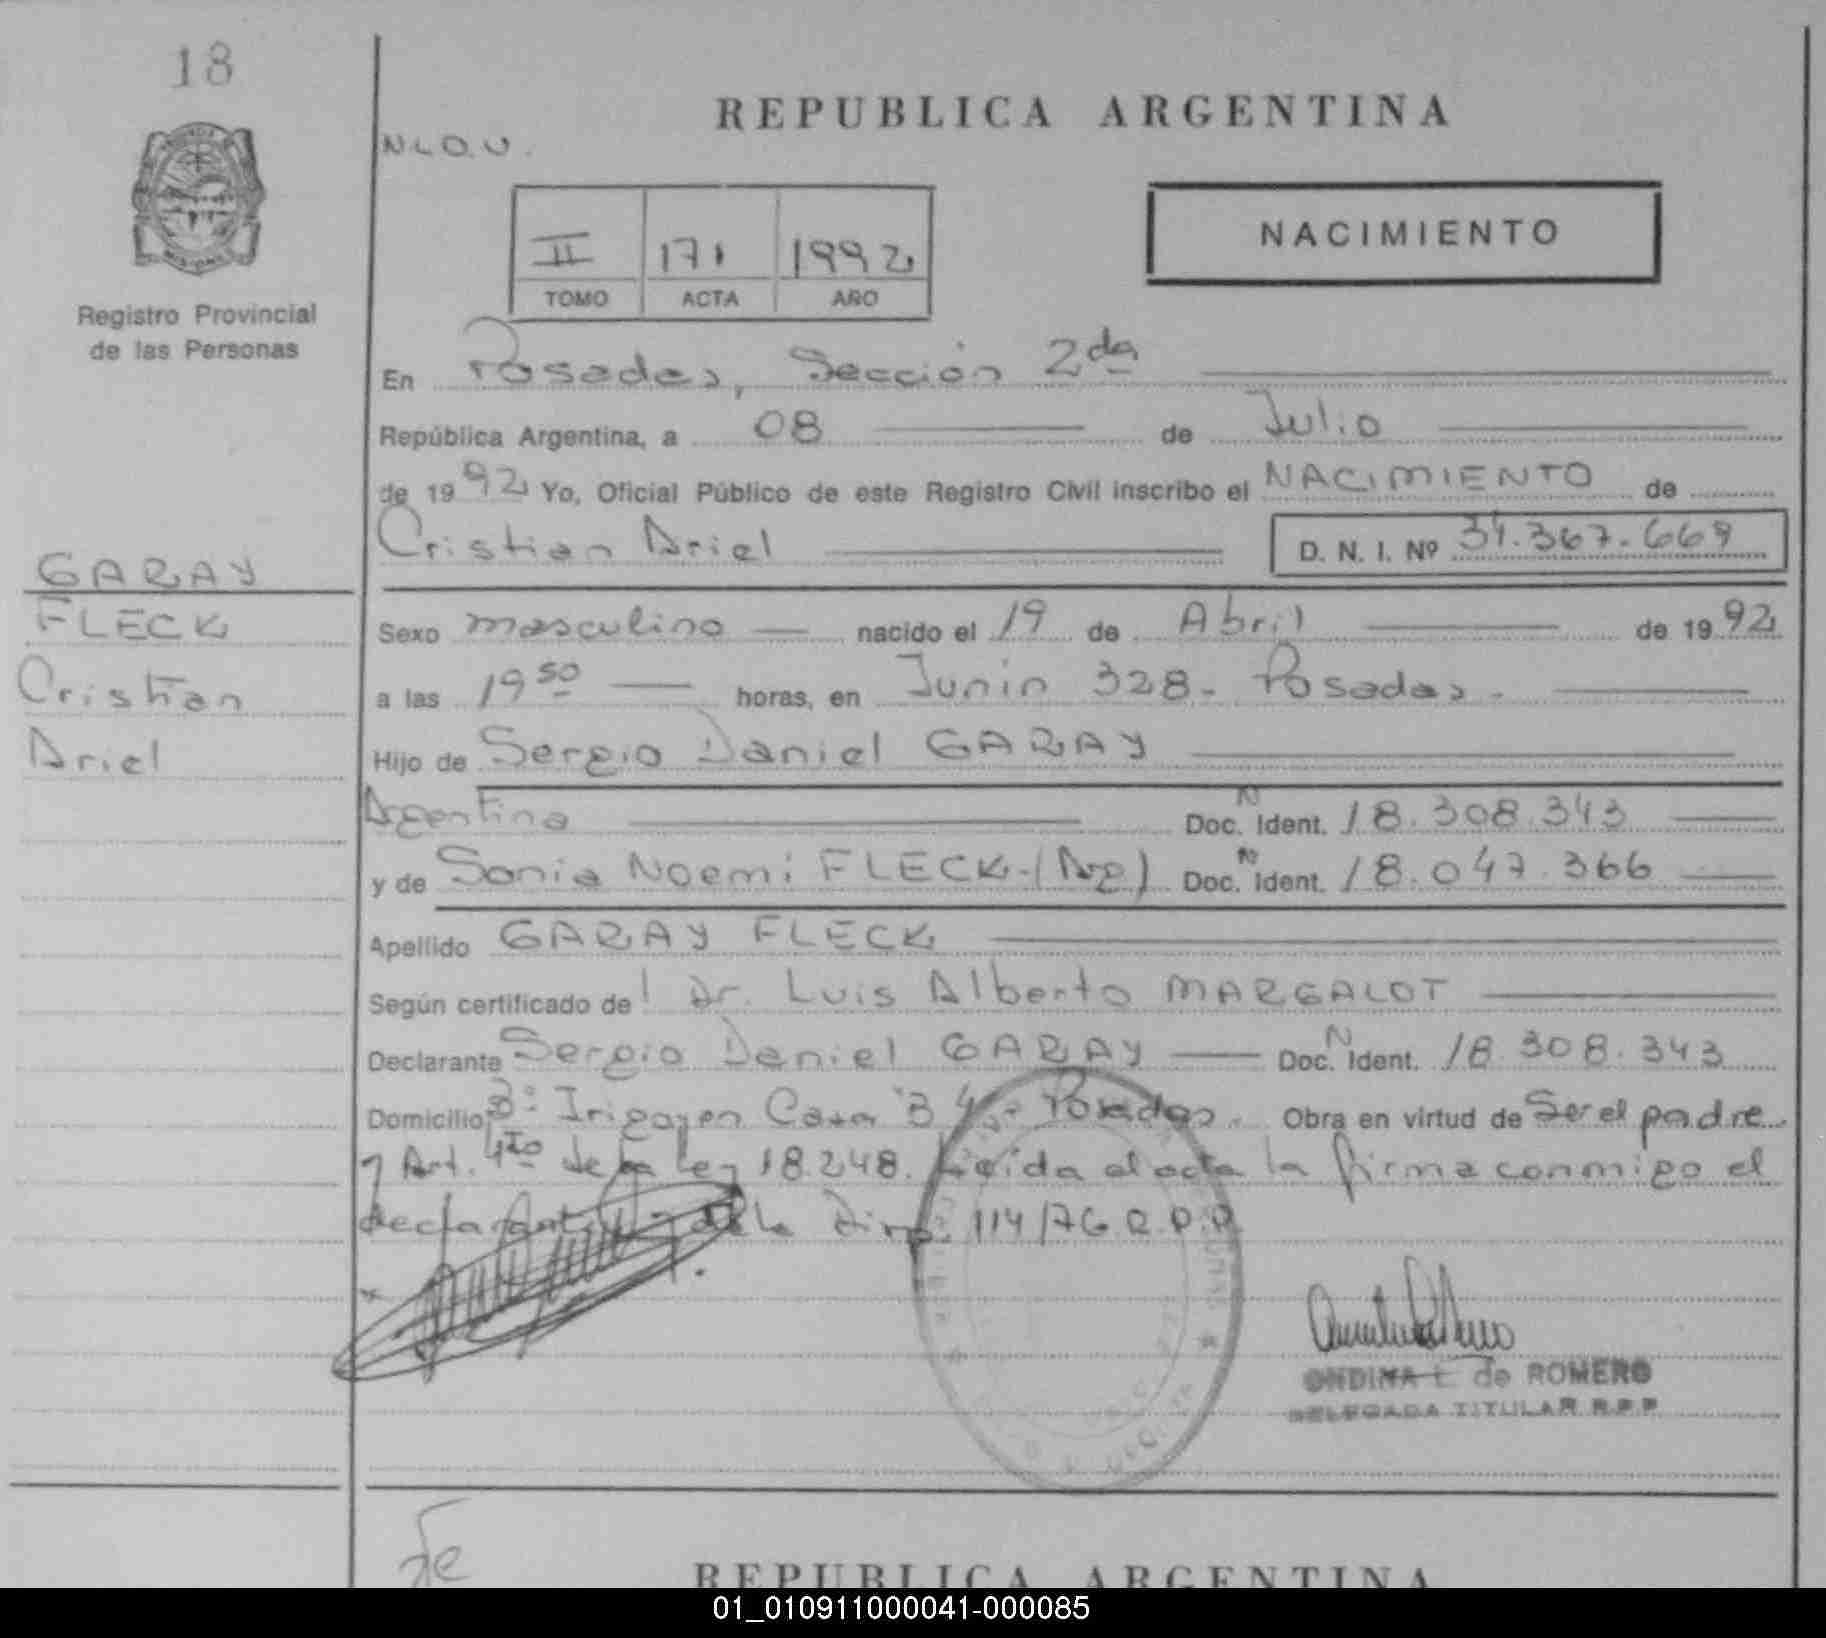 18
REPUBLICA ARGENTINA
N.L.O.U.
NACIMIENTO
II 171 1992
TOMO ACTA AÑO
Registro Provincial
de las Personas
En Posadas, Sección 2da
República Argentina, a 08 de Julio
de 1992 Yo, Oficial Público de este Registro Civil inscribo el NACIMIENTO de
Cristian Ariel D. N. I. Nº
GARAY
FLECK
Cristian
Ariel
Sexo masculino nacido el 19 de Abril de 1992
a las 19 50 horas, en Junin 328 - Posadas -
Hijo de Sergio Daniel GARAY
Argentina Doc. N Ident. 18.308.343
y de Sonia Noemi FLECK - (Arg) Doc. N Ident. 18.047.366
Apellido GARAY FLECK
Según certificado de Dr. Luis Alberto MARGALOT
Declarante Sergio Daniel GARAY Doc. N Ident. 18.308.343
Domicilio Bº Irigoyen Casa Posadas. Obra en virtud de Ser el padre
y Art. 4to de la Ley 18.248. Leida el acta la firma conmigo el
declarante y de la Disp. 114/76 R.P.P.
ONDINA L. de ROMERO
DELEGADA TITULAR R.P.P
REPUBLICA ARGENTINA
01_010911000041-000085